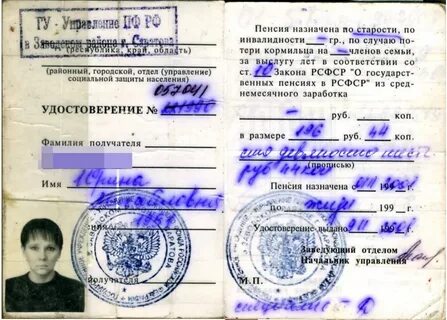 ГУ - Управление ПФ РФ
в Заводском районе г. Саратова
(республика, край, область)
(районный, городской, отдел (управление)
социальной защиты населения)
057041
УДОСТОВЕРЕНИЕ №
Фамилия получателя
Имя Ирина
Михайловна
получателя
Пенсия назначена по старости, по
инвалидности — гр., по случаю по-
тери кормильца на – членов семьи,
за выслугу лет в соответствии со
ст. 10 Закона РСФСР "О государст-
венных пенсиях в РСФСР" из
среднемесячного заработка
— руб. коп.
в размере 196 руб. 44 коп.
сто девяносто шесть
руб 44
(прописью)
Пенсия назначена 199 г.
по жизн 199 г.
Удостоверение выдано 199 г.
Заведующий отделом
Начальник управления
М.П.